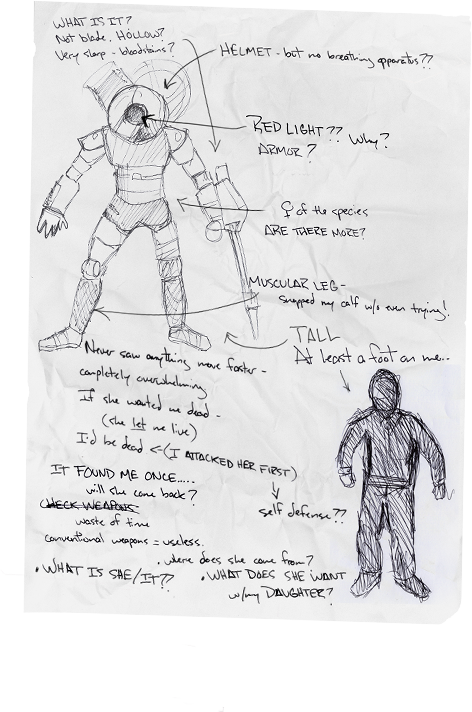 WHAT IS IT?
Not blade. HOLLOW?
Very sharp - bloodstains?
HELMET - but no breathing apparatus??
RED LIGHT?? Why?
ARMOR?
♀ of the species
ARE THERE MORE?
MUSCULAR LEG-
snapped my calf w/o even trying!
TALL
At least a foot on me...
Never saw anything move faster -
completely overwhelming
If she wanted me dead -
(she let me live)
I'd be dead <- (I ATTACKED HER FIRST)
self defense??
IT FOUND ME ONCE.....
will she come back?
CHECK WEAPONS-
waste of time
conventional weapons = useless.
. where does she come from?
. WHAT IS SHE/IT??
. WHAT DOES SHE WANT
w/my DAUGHTER?